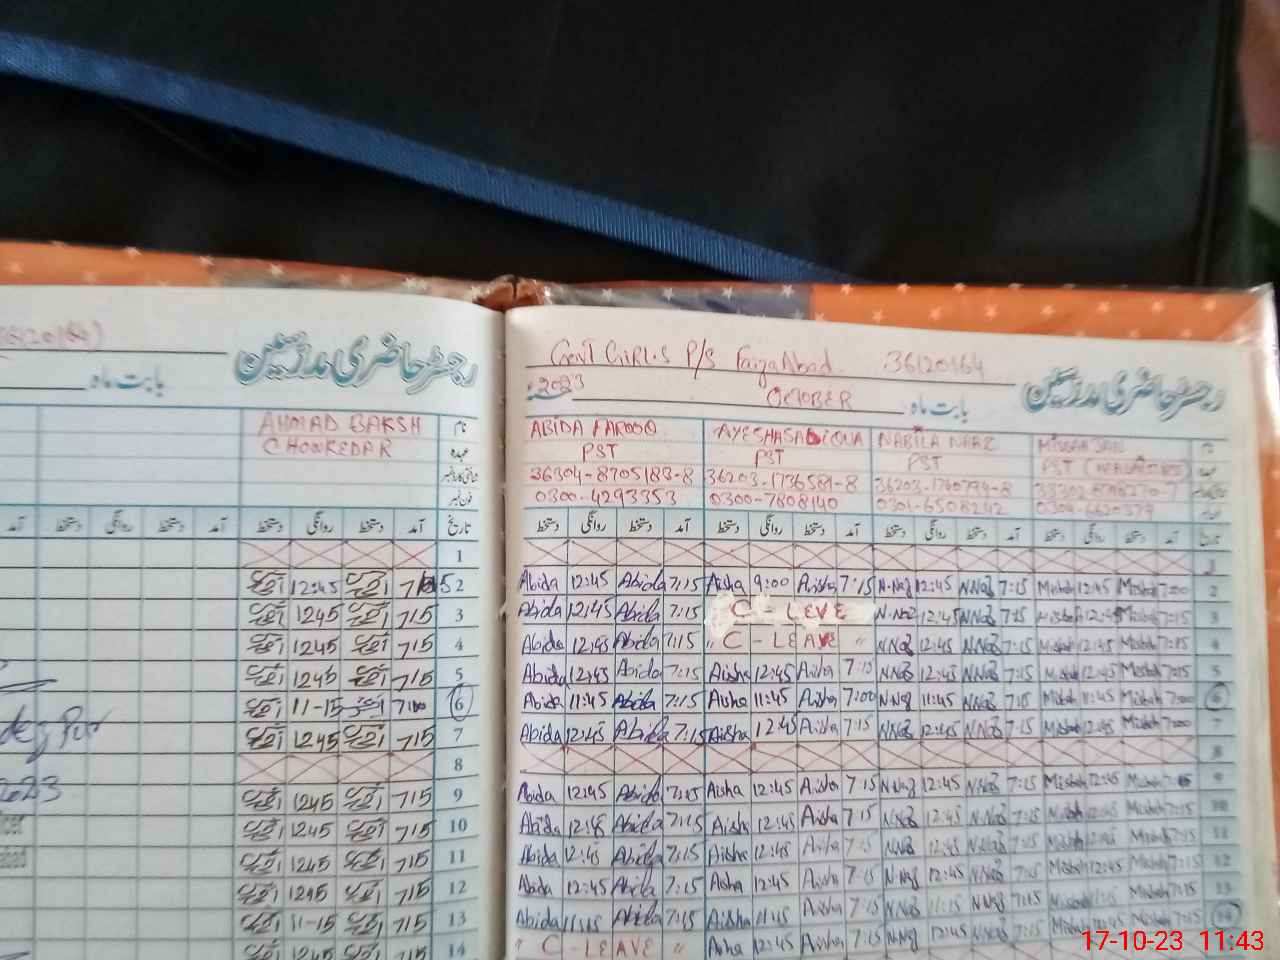 رجسٹر حاضری مدرسین
بابت ماہ
AHMAD BAKSH
CHOWKEDAR
نام
عہدہ
آمد دستخط روانگی دستخط آمد دستخط روانگی دستخط آمد تاریخ
1
12:45 715 2
1245 715 3
1245 715 4
1245 715 5
11-15 6
1245 715 7
8
1245 715 9
1245 715 10
1245 715 11
1245 715 12
11-15 715 13
1245 715 14
2023
GOVT GIRLS P/S Faiza Abad. 36120164
رجسٹر حاضری مدرسین
2023 OCTOBER بابت ماہ
ABIDA FAROOQ AYESHA SADIQUA NABILA NAAZ نام
PST PST PST PST عہدہ
36304-8705183-8 36203-1736581-8
0300-4293353 0300-7808140 0301-6508242
دستخط روانگی دستخط آمد دستخط روانگی دستخط آمد دستخط روانگی دستخط آمد دستخط روانگی دستخط آمد تاریخ
1
Abida 12:45 Abida 7:15 Aisha 9:00 Aisha 7:15 N.Naz 12:45 N.Naz 7:15 Misbah 12:45 Misbah 7:00 2
Abida 12:45 Abida 7:15 C - LEVE N.Naz 12:45 N.Naz 7:15 Misbah 12:45 Misbah 7:15 3
Abida 12:45 Abida 7:15 " C - LEAVE " N.Naz 12:45 N.Naz 7:15 Misbah 12:45 Misbah 7:15 4
Abida 12:45 Abida 7:15 Aisha 12:45 Aisha 7:15 N.Naz 12:45 N.Naz 7:15 Misbah 12:45 Misbah 7:15 5
Abida 11:45 Abida 7:15 Aisha 11:45 Aisha 7:00 N.Naz 11:45 N.Naz 7:15 Misbah 11:45 Misbah 7:00 6
Abida 12:45 Abida 7:15 Aisha 12:45 Aisha 7:15 N.Naz 12:45 N.Naz 7:15 Misbah 12:45 Misbah 7:00 7
8
Abida 12:45 Abida 7:15 Aisha 12:45 Aisha 7:15 N.Naz 12:45 N.Naz 7:15 Misbah 12:45 Misbah 9
Abida Abida 7:15 Aisha 12:45 Aisha 7:15 N.Naz 12:45 N.Naz 7:15 Misbah 12:45 Misbah 7:15 10
Abida 12:45 Abida 7:15 Aisha 12:45 Aisha 7:15 N.Naz 12:45 N.Naz 7:15 Misbah 12:45 Misbah 7:15 11
Abida 12:45 Abida 7:15 Aisha 12:45 Aisha 7:15 N.Naz 12:45 N.Naz 7:15 Misbah 12:45 Misbah 7:15 12
Abida 11:15 Abida 7:15 Aisha 11:15 Aisha 7:15 N.Naz 11:15 N.Naz 7:15 Misbah 11:15 Misbah 7:15 13
" C - LEAVE " Aisha 12:45 Aisha 7:15 N.Naz 12:45 N.Naz 7:15 Misbah 14
17-10-23 11:43